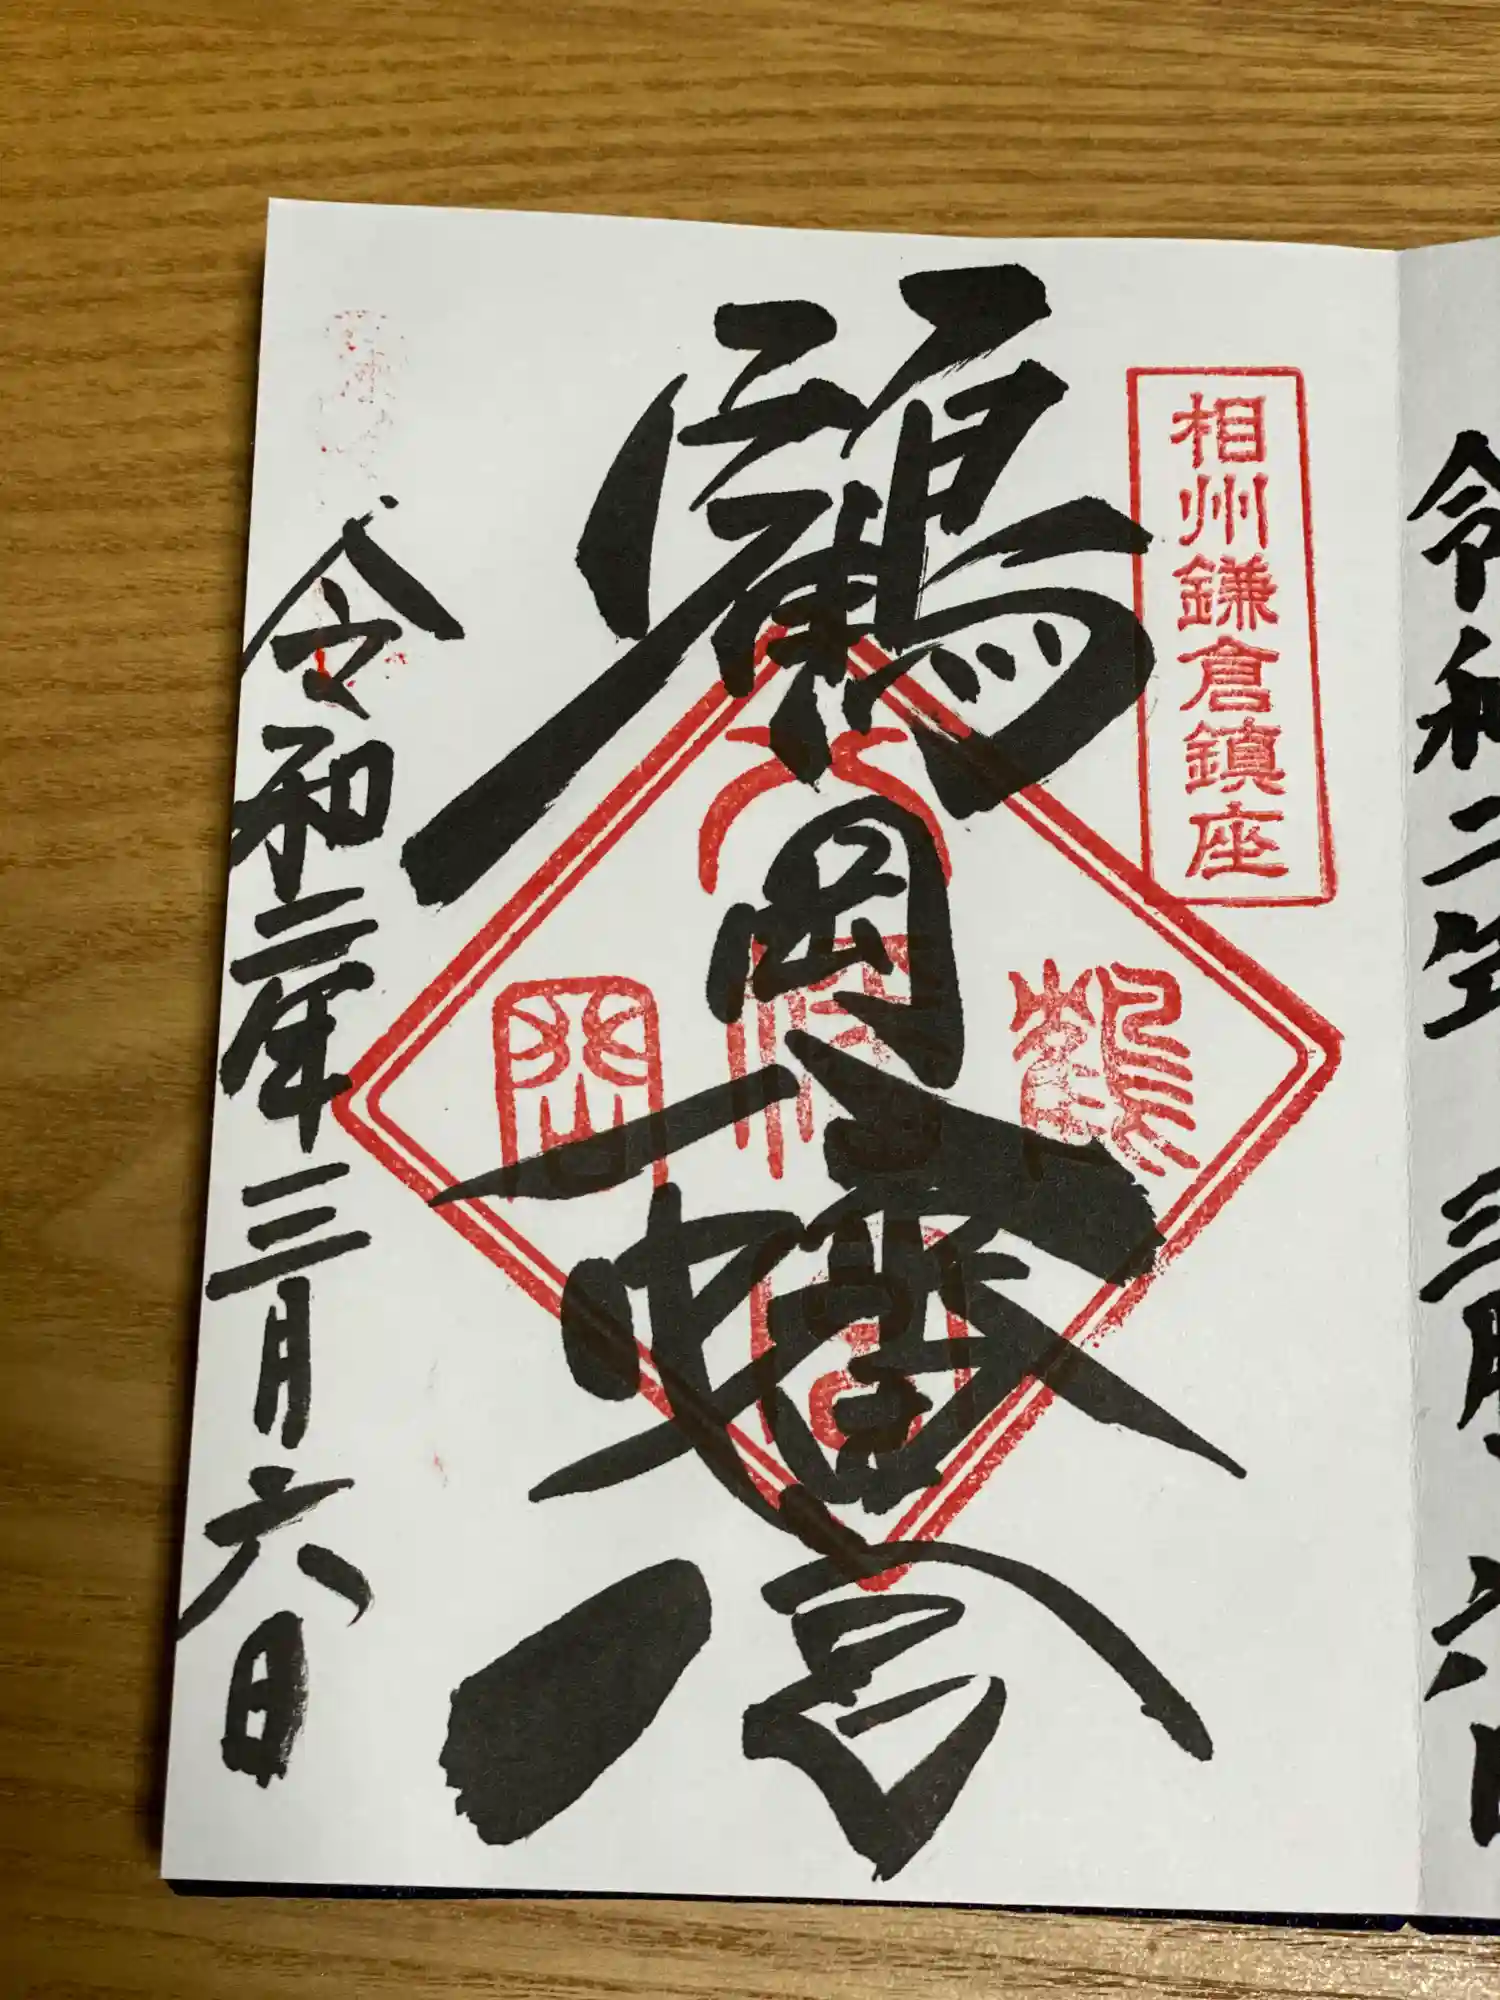 令和二年三月六日
相州鎌倉鎮座
鶴岡八幡宮
鶴岡八幡宮
令和二年三月六日